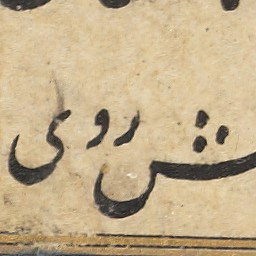 ش روی